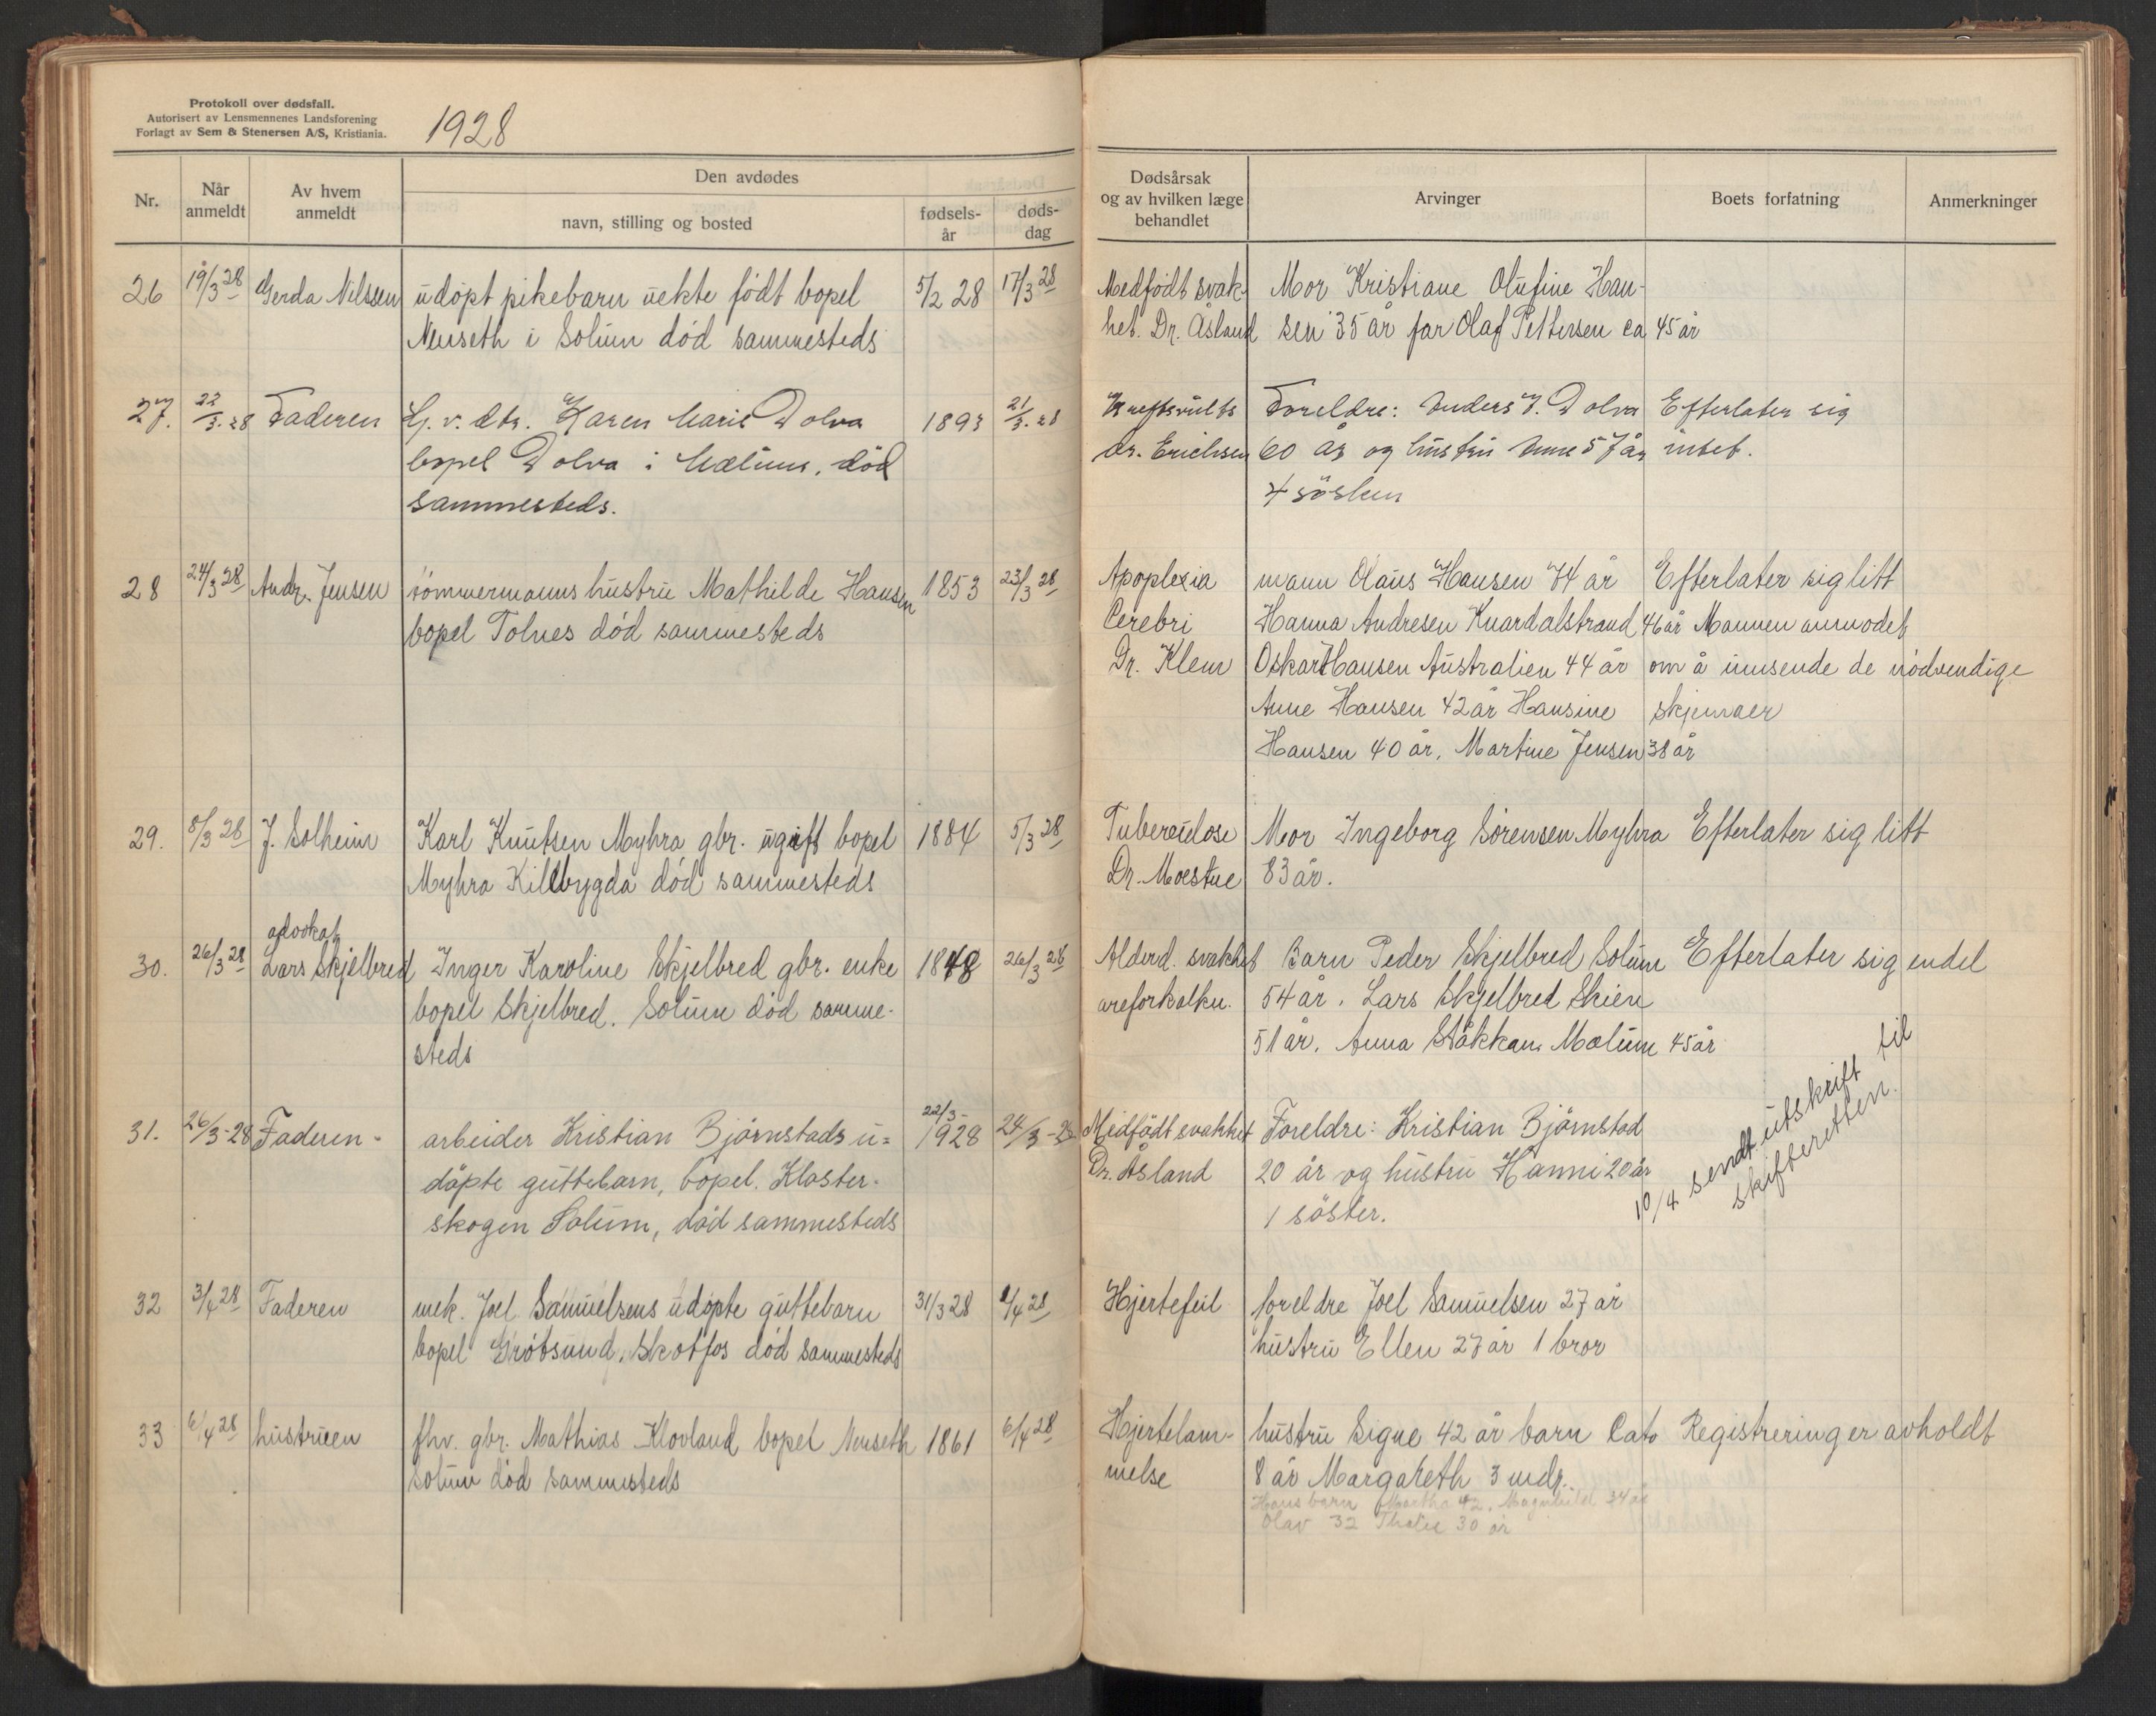 Protokoll over dødsfall.
Autorisert av Lensmennenes Landsforening
Forlagt av Sem & Stenersen A/S, Kristiania.
1928
Nr.
Når anmeldt
Av hvem anmeldt
Den avdødes
navn, stilling og bosted
fødsels-år
døds-dag
Dødsårsak og av hvilken læge behandlet
Arvinger
Boets forfatning
Anmerkninger
26 19/3 28 Gerda Nilssen udöpt pikebarn uekte född bopel 5/2 28 17/3 28 Medfödt svak- Mor Kristiane Olufine Han-
Nenseth i Solum död sammesteds het. Dr. Åsland sen 35 år far Olaf Pettersen ca 45 år
27. 22/3. 28 Faderen Hj. v. dtr. Karen Marie Dolva 1893 21/3. 28 Foreldre: Anders J. Dolva Efterlater sig
bopel Dolva i Mælum, död dr. Erichsen 60 år og hustru Anne 57 år intet.
sammesteds. 4 sösken
28 24/3 28 Andr. Jensen tömmermanns hustru Mathilde Hansen 1853 23/3 28 Apoplexia mann Olaus Hansen 74 år Efterlater sig litt
bopel Tolnes död sammesteds Cerebri Hanna Andresen Knardalstrand 46 år Mannen anmodet
Dr. Klem Oskar Hansen Australien 44 år om å innsende de nödvendige
Anne Hansen 42 år Hansine skjemaer
Hansen 40 år. Martine Jensen 38 år
29. 8/3 28 J. Solheim Karl Knutsen Myhra gbr. ugift bopel 1884 5/3 28 Tuberculose Mor Ingeborg Sörensen Myhra Efterlater sig litt
Myhra Kilebygda död sammesteds Dr. Moestue 83 år.
advokat
30. 26/3 28 Lars Skjelbred Inger Karoline Skjelbred gbr. enke 1848 26/3 28 Alderd. svakhet Barn Peder Skjelbred Solum Efterlater sig endel
bopel Skjelbred. Solum död samme- areforkalkn. 54 år. Lars Skjelbred Skien
steds 51 år. Anna Stokkan Mælum 45 år
10/4 sendt utskrift til
skifteretten.
22/3-
31. 26/3-28 Faderen- arbeider Kristian Björnstads u= 1928 24/3-28 Medfödt svakhet Foreldre: Kristian Björnstad
döpte guttebarn, bopel. Kloster- Dr. Åsland 20 år og hustru Hanni 20 år
skogen Solum, död sammesteds 1 söster.
32 3/4 28 Faderen mek. Joel Samuelsens udöpte guttebarn 31/3 28 1/4 28 Hjertefeil foreldre Joel Samuelsen 27 år
bopel Grötsund, Skotfos död sammesteds hustru Ellen 27 år 1 bror
33 6/4 28 hustruen fhv. gbr. Mathias Klovland bopel Nenseth 1861 6/4 28 Hjertelam- hustru Signe 42 år barn Cato Registrering er avholdt
Solum död sammesteds melse 8 år Margareth 3 mdr.
Hans barn Martha 42, Magnhild 34 år
Olav 32 30 år